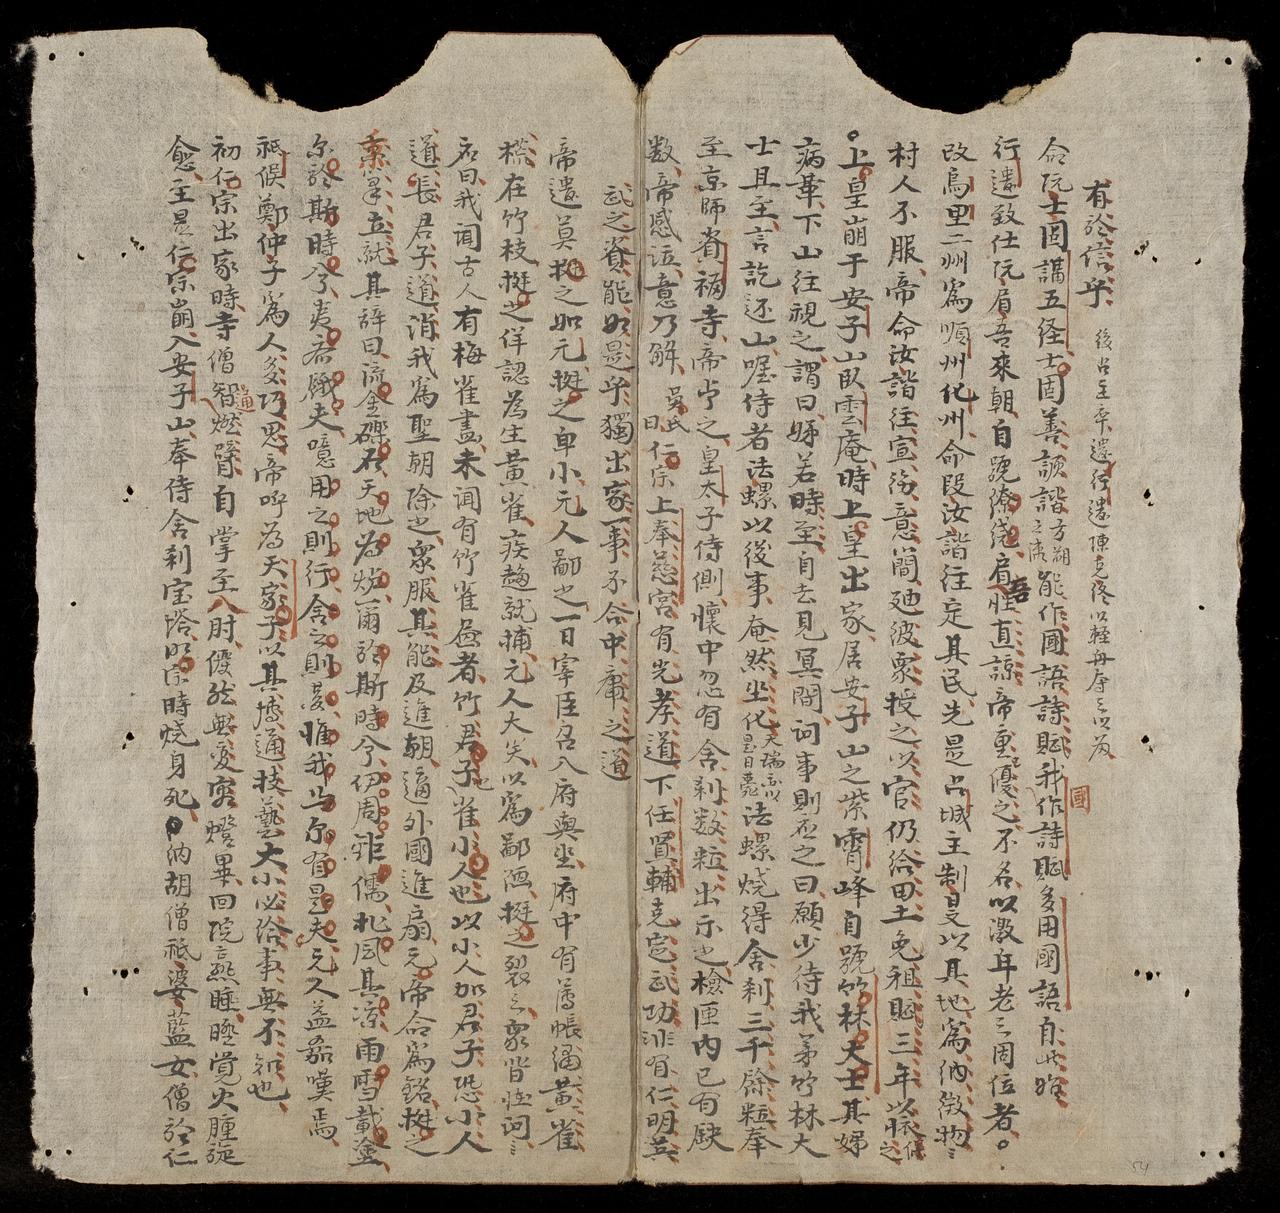 有於信乎 後占主卒遣行遣陳克終以輕舟夺之以放
命阮士固講五経士固善詼諧方朔之流能作國語詩賦我國作詩賦多用國語自此始
行遣致仕阮眉吾來朝自號潦倒眉吾性直諒帝重優之不名以激年老三周位者
改烏里二州為順州化州命段汝諧往定其民先是占城主制旻以其地為納徵物
村人不服帝命汝諧往宣旨意簡廸彼眾授之以官仍給田土免租賦三年以怀服之
上皇崩于安子山臥雲庵時上皇出家居安子山之紫霄峰自號竹林大士其姉
病革下山往視之謂曰姉若時至自去見冥間詞事則应之曰願少待我弟竹林大
士且至言訖还山嘱侍者法螺以後事奄然坐化天瑞亦以是日薨法螺燒得舍利三千餘粒奉
至京師資福寺帝尚之皇太子侍側懷中忽有舍利数粒出示之檢匣内已有缺
数帝感泣意乃解 吳氏曰仁宗上奉慈宮有光孝道下任賢輔克宏武功非有仁明英
武之資能如是乎獨出家一事不合中庸之道
帝遣莫挺之如元挺之卑小元人鄙之一日宰臣召入府與坐府中有薄帳綉黄雀
樣在竹枝挺之佯認為生黄雀疾趨就捕元人大笑以為鄙陋挺之裂之衆皆怪問之
応曰我闻古人有梅雀畫未闻有竹雀画者竹君子也雀小人也以小人加君子恐小人
道長君子道消我為聖朝除之眾服其能及進朝適外國進扇元帝命為銘挺之
秉筆立就其辞曰流金礫石天地為炉爾於斯時兮伊周鉅儒北風其涼雨雪載塗
尔於斯時兮夷齊餓夫噫用之則行舍之則藏惟我与尔有是夫元人益加嘆焉
祗候鄭仲子為人多巧思帝呼為天家子以其博通技藝大小必給事無不知也
初仁宗出家時寺僧智通燃臂自掌至肘儼然無変容燈畢回院熟睡睡覚火腫旋
愈至是仁宗崩入安子山奉侍舍利宝塔明宗時燒身死 納胡僧祇婆藍女僧於仁